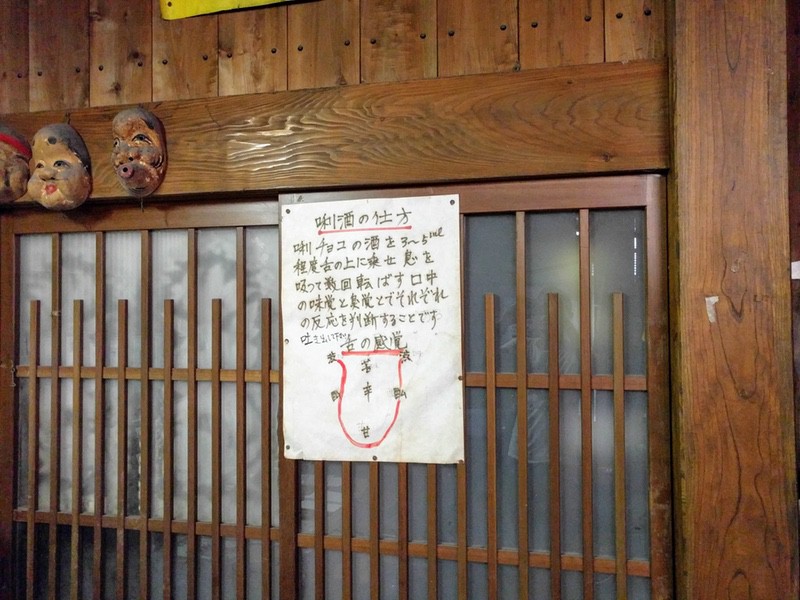 唎酒の仕方
唎チョコの酒を3〜5ml
程度舌の上に乗せ息を
吸って数回転ばす口中
の味覚と臭覚とでそれぞれ
の反応を判断することです
吐き出し下さい
舌の感覚
渋 渋
苦
酸 辛 酸
甘